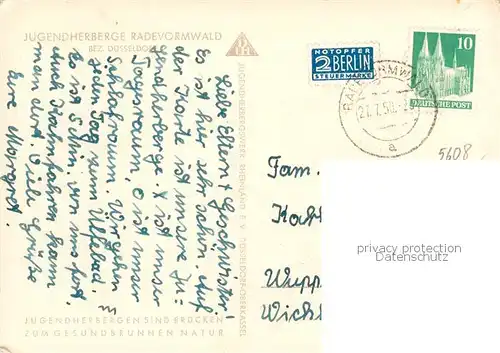 JUGENDHERBERGE RADEVORMWALD
BEZ. DÜSSELDORF
Liebe Eltern + Geschwister!
Es ist hier sehr schön. Auf
der Karte ist unsere Ju=
gendherberge. X ist unser
Tagesraum, O ist unser
Schlafraum. Wir gehen
jeden Tag zum Ülfebad.
Es ist 5 Min. von uns fort.
Auch Kahnfahren kann
man dort. Viele Grüße
Eure Margret.
JUGENDHERBERGSWERK RHEINLAND E.V. DÜSSELDORF-OBERKASSEL
JUGENDHERBERGEN SIND BRÜCKEN
ZUM GESUNDBRUNNEN NATUR
NOTOPFER
2 BERLIN
STEUERMARKE
10
DEUTSCHE POST
RADEVORMWALD
27.7.50
a
5608
Fam.
Wupp
privacy protection
Datenschutz